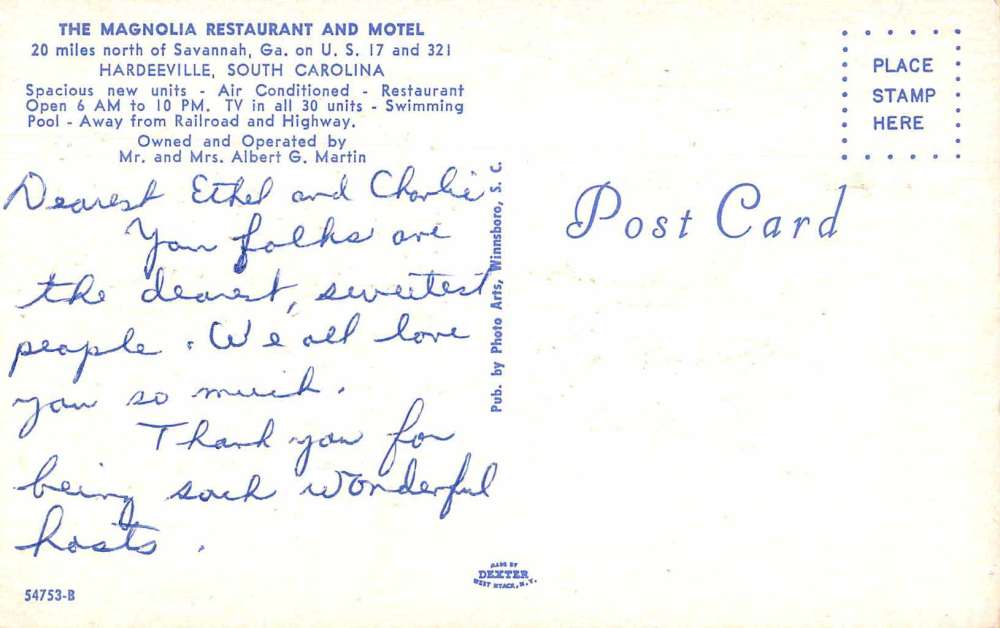 THE MAGNOLIA RESTAURANT AND MOTEL
20 miles north of Savannah, Ga. on U. S. 17 and 321
HARDEEVILLE, SOUTH CAROLINA
Spacious new units - Air Conditioned - Restaurant
Open 6 AM to 10 PM. TV in all 30 units - Swimming
Pool - Away from Railroad and Highway.
Owned and Operated by
Mr. and Mrs. Albert G. Martin
Dearest Ethel and Charlie
You folks are
the dearest, sweetest
people. We all love
you so much.
Thank you for
being such wonderful
hosts.
54753-B
Pub. by Photo Arts, Winnsboro, S. C.
MADE BY
DEXTER
WEST NYACK, N. Y.
PLACE
STAMP
HERE
Post Card